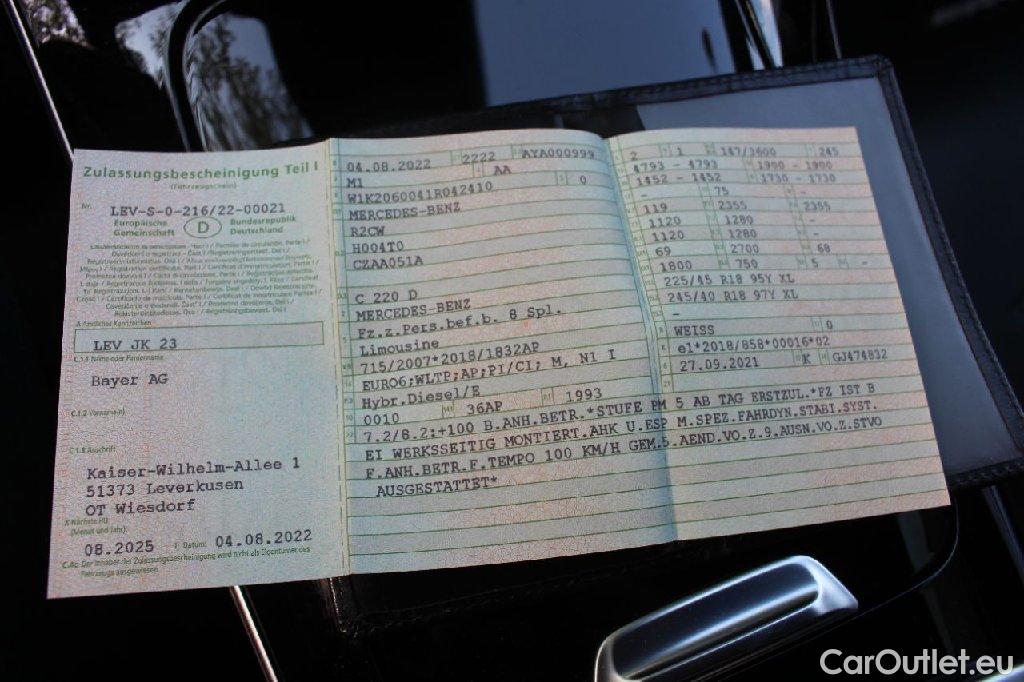 Zulassungsbescheinigung Teil I
(Fahrzeugschein)
Nr. LEV-S-0-216/22-00021
Europäische Gemeinschaft D Bundesrepublik Deutschland
Amtliches Kennzeichen
LEV JK 23
C.1.1 Name oder Firmenname
Bayer AG
C.1.2 Vorname(n)
C.1.3 Anschrift
Kaiser-Wilhelm-Allee 1
51373 Leverkusen
OT Wiesdorf
(Monat und Jahr)
08.2025 I Datum: 04.08.2022
C.4c Der Inhaber der Zulassungsbescheinigung wird nicht als Eigentümer des
Fahrzeugs ausgewiesen.
04.08.2022 2222 AYA000999
M1 AA
W1K2060041R042410 0
MERCEDES-BENZ
R2CW
H004T0
CZAA051A
C 220 D
MERCEDES-BENZ
Fz.z.Pers.bef.b. 8 Spl.
Limousine
715/2007*2018/1832AP
EURO6;WLTP;AP;PI/CI; M, N1 I
Hybr.Diesel/E
0010 36AP 1993
7.2/8.2:+100 B.ANH.BETR.*STUFE PM 5 AB TAG ERSTZUL.*FZ IST B
EI WERKSSEITIG MONTIERT.AHK U.ESP M.SPEZ.FAHRDYN.STABI.SYST.
F.ANH.BETR.F.TEMPO 100 KM/H GEM.5.AEND.VO.Z.9.AUSN.VO.Z.STVO
AUSGESTATTET*
2 1 147/3600 245
4793 - 4793 1900 - 1900
1452 - 1452 1730 - 1730
- 75 -
119 2355 2355
1120 1280 -
1120 1280 -
69 2700 68
1800 750 5 -
225/45 R18 95Y XL
245/40 R18 97Y XL
-
-
WEISS 0
e1*2018/858*00016*02
27.09.2021 K GJ474832
CarOutlet.eu